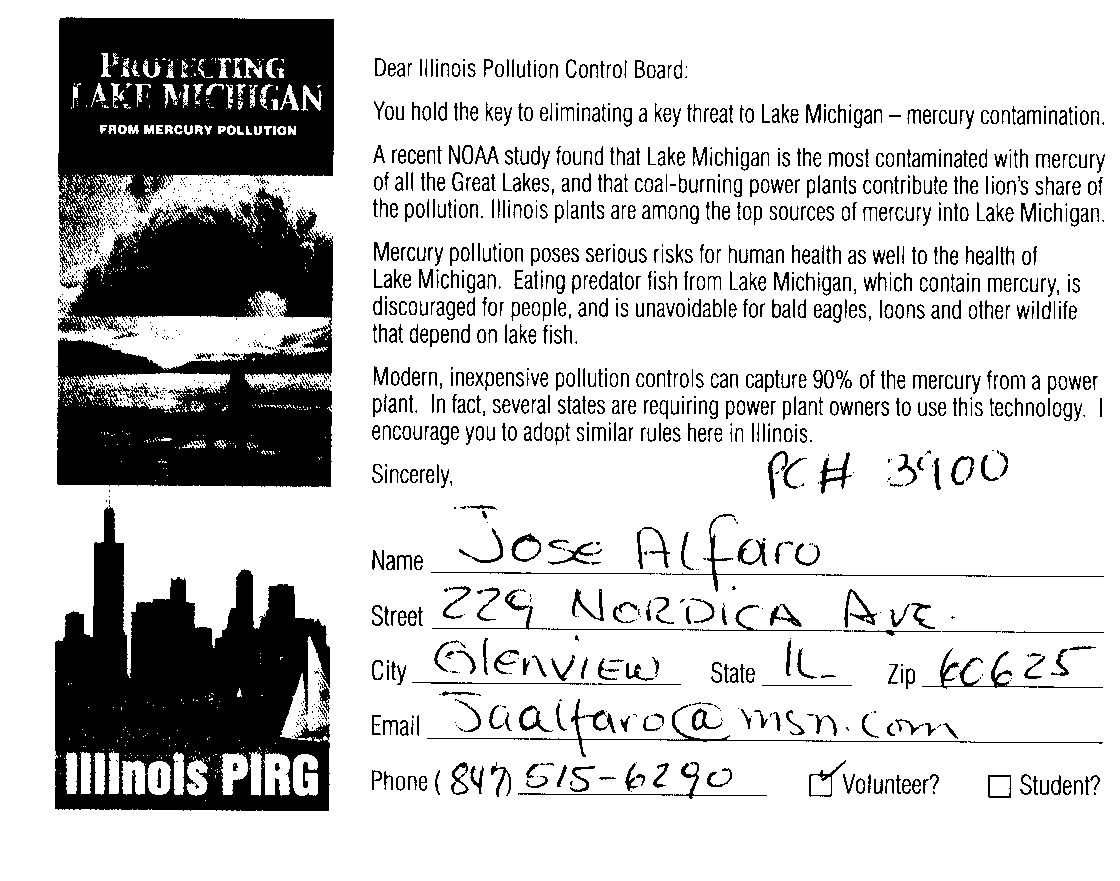 PROTECTING
LAKE MICHIGAN
FROM MERCURY POLLUTION
Dear Illinois Pollution Control Board:
You hold the key to eliminating a key threat to Lake Michigan – mercury contamination.
A recent NOAA study found that Lake Michigan is the most contaminated with mercury
of all the Great Lakes, and that coal-burning power plants contribute the lion's share of
the pollution. Illinois plants are among the top sources of mercury into Lake Michigan.
Mercury pollution poses serious risks for human health as well to the health of
Lake Michigan. Eating predator fish from Lake Michigan, which contain mercury, is
discouraged for people, and is unavoidable for bald eagles, loons and other wildlife
that depend on lake fish.
Modern, inexpensive pollution controls can capture 90% of the mercury from a power
plant. In fact, several states are requiring power plant owners to use this technology. I
encourage you to adopt similar rules here in Illinois.
Sincerely,
PC# 3900
Name Jose Alfaro
Street 229 Nordica Ave.
City Glenview State IL Zip 60625
Email Jaalfaro@msn.com
Phone (847) 515-6290 Volunteer? Student?
Illinois PIRG